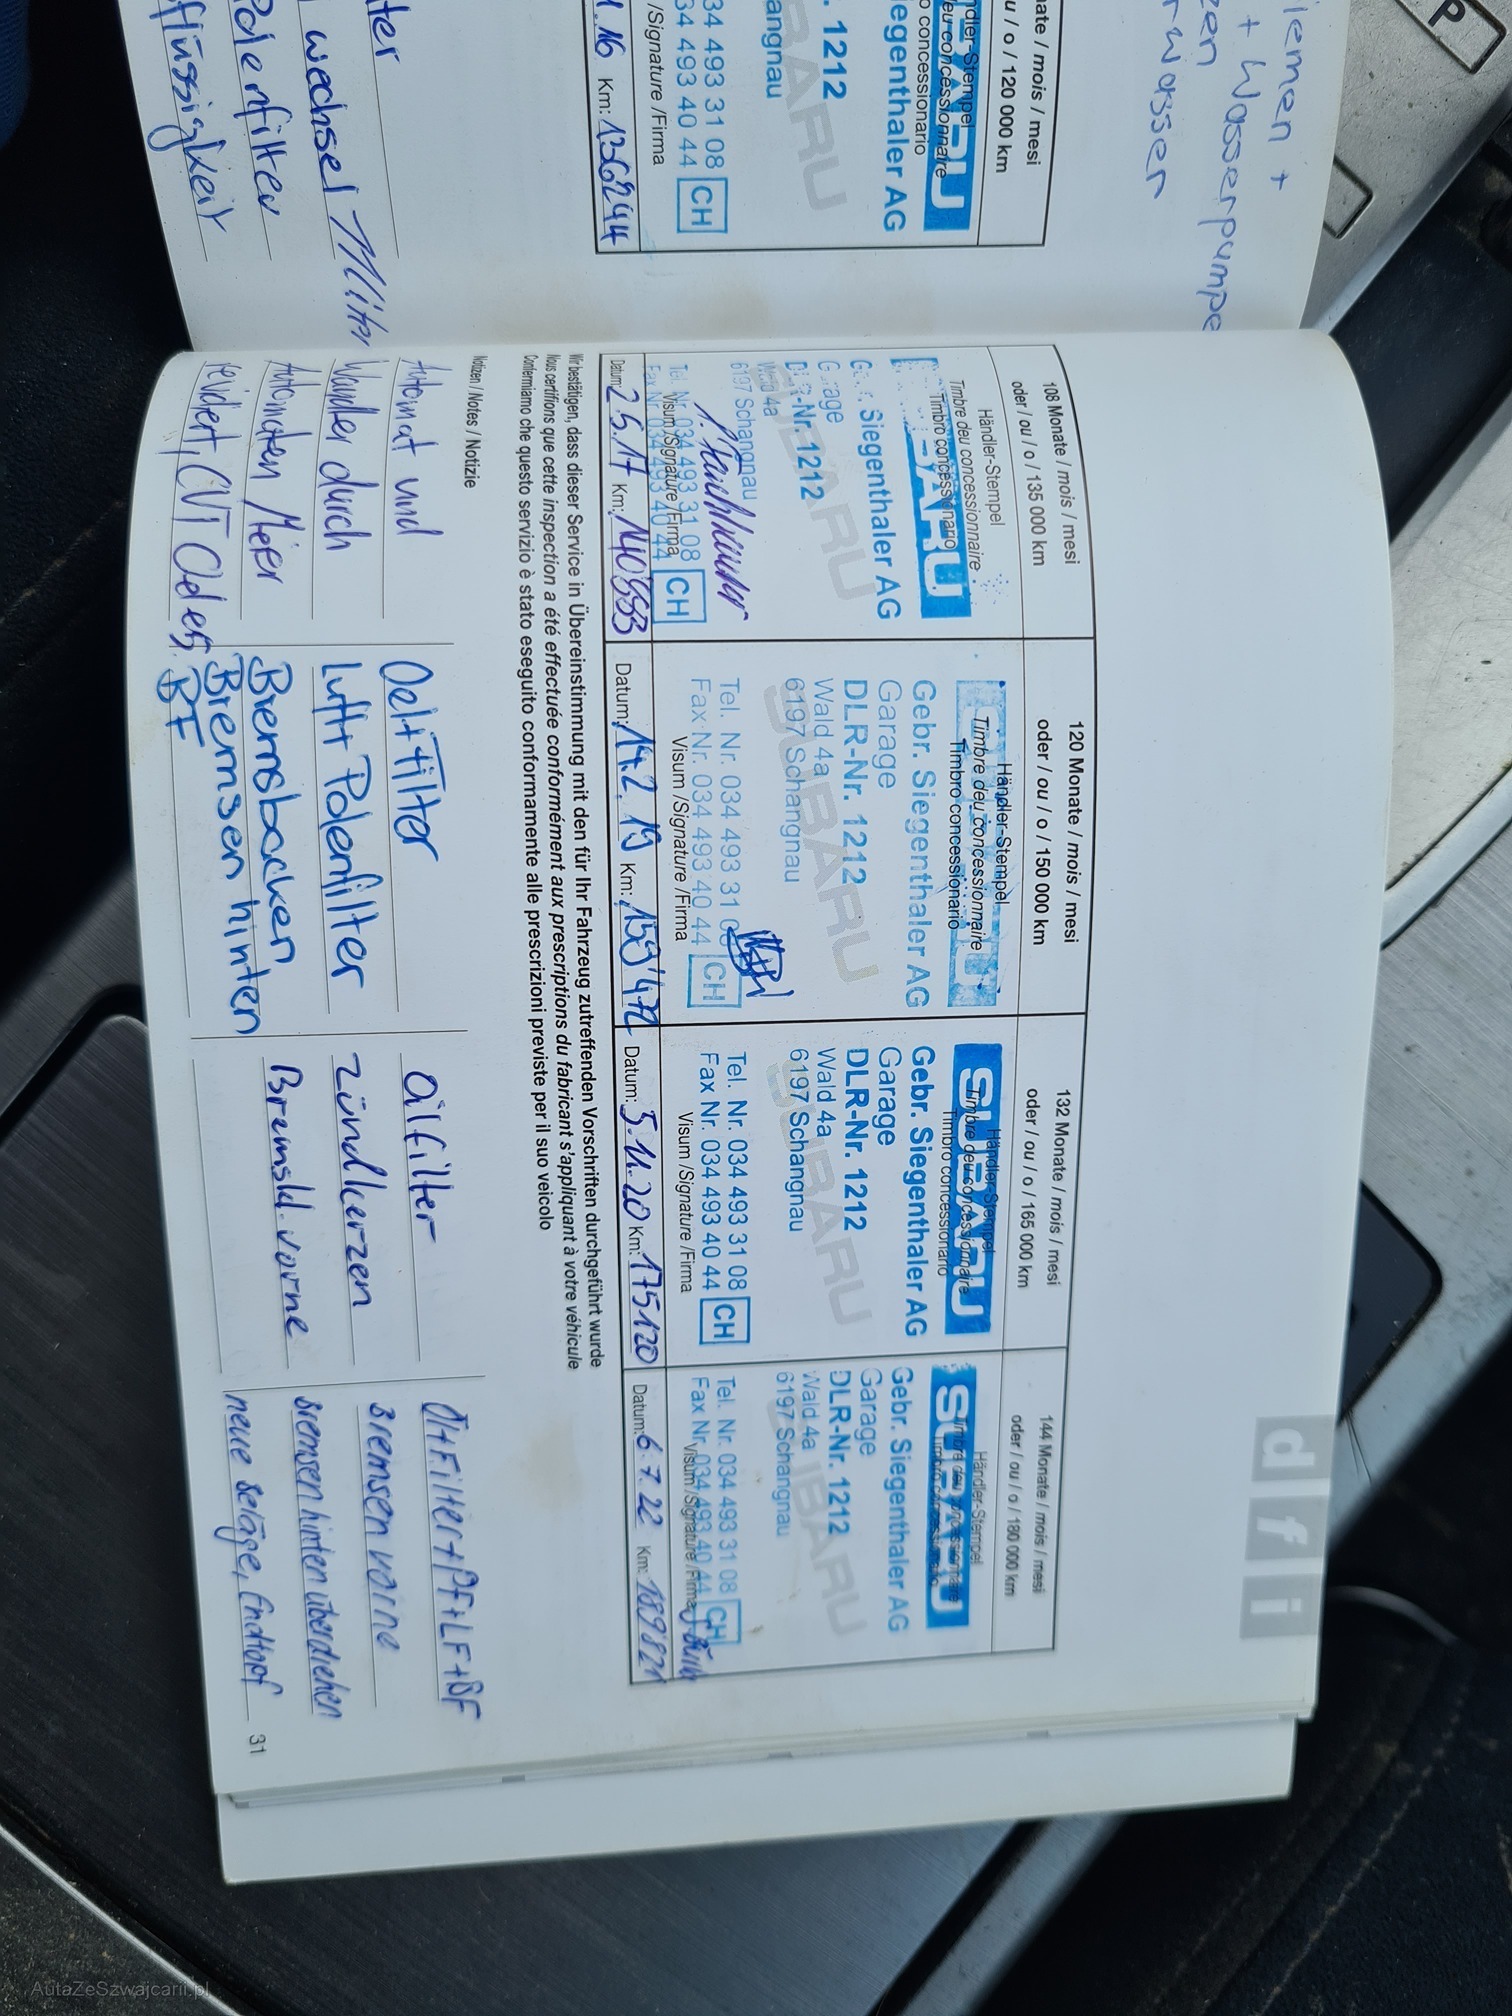 iemen +
+ Wasserpumpe
zen
rwasser
nate / mois / mesi
u / o / 120 000 km
ndler-Stempel
eu concessionnaire
o concessionario
iegenthaler AG
. 1212
angnau
34 493 31 08
34 493 40 44 CH
/Signature /Firma
1.16 Km: 136244
ter
wechsel
Polenfilter
flüssigkeit
108 Monate / mois / mesi
oder / ou / o / 135 000 km
Händler-Stempel
Timbre deu concessionnaire
Timbro concessionario
SUBARU
Siegenthaler AG
DLR-Nr. 1212
6197 Schangnau
Tel. Nr. 034 493 31 08
Fax Nr. 034 493 40 44 CH
Visum /Signature /Firma
Datum: 2.5.17 Km: 140'993
120 Monate / mois / mesi
oder / ou / o / 150 000 km
Händler-Stempel
Timbre deu concessionnaire
Timbro concessionario
Gebr. Siegenthaler AG
Garage
DLR-Nr. 1212
Wald 4a
6197 Schangnau
SUBARU
Tel. Nr. 034 493 31 08
Fax Nr. 034 493 40 44 CH
Visum /Signature /Firma
Datum: 14.2.19 Km: 159'472
132 Monate / mois / mesi
oder / ou / o / 165 000 km
Händler-Stempel
Timbre deu concessionnaire
Timbro concessionario
SUBARU
Gebr. Siegenthaler AG
Garage
DLR-Nr. 1212
Wald 4a
6197 Schangnau
SUBARU
Tel. Nr. 034 493 31 08
Fax Nr. 034 493 40 44 CH
Visum /Signature /Firma
Datum: 5.11.20 Km: 175120
144 Monate / mois / mesi
oder / ou / o / 180 000 km
Händler-Stempel
Timbre deu concessionnaire
SUBARU
Gebr. Siegenthaler AG
Garage
DLR-Nr. 1212
Wald 4a
6197 Schangnau
Tel. Nr. 034 493 31 08
Fax Nr. 034 493 40 44 CH
Visum /Signature /Firma
Datum: 6.7.22 Km: 189'821
Wir bestätigen, dass dieser Service in Übereinstimmung mit den für Ihr Fahrzeug zutreffenden Vorschriften durchgeführt wurde
Nous certifions que cette inspection a été effectuée conformément aux prescriptions du fabricant s'appliquant à votre véhicule
Confermiamo che questo servizio è stato eseguito conformamente alle prescrizioni previste per il suo veicolo
Notizen / Notes / Notizie
Automat und
Wandler durch
Automaten Meier
revidert, CVT Oel es.
Oel+Filter
Luft+Polenfilter
Bremsbacken
Bremsen hinten
BF
Ölfilter
Zündkerzen
Bremskl. vorne
Öl+Filter+PF+LF+BF
Bremsen vorne
Bremsen hinten überdrehen
neue Beläge, Endtopf
31
d f i
P
AutaZeSzwajcarii.pl